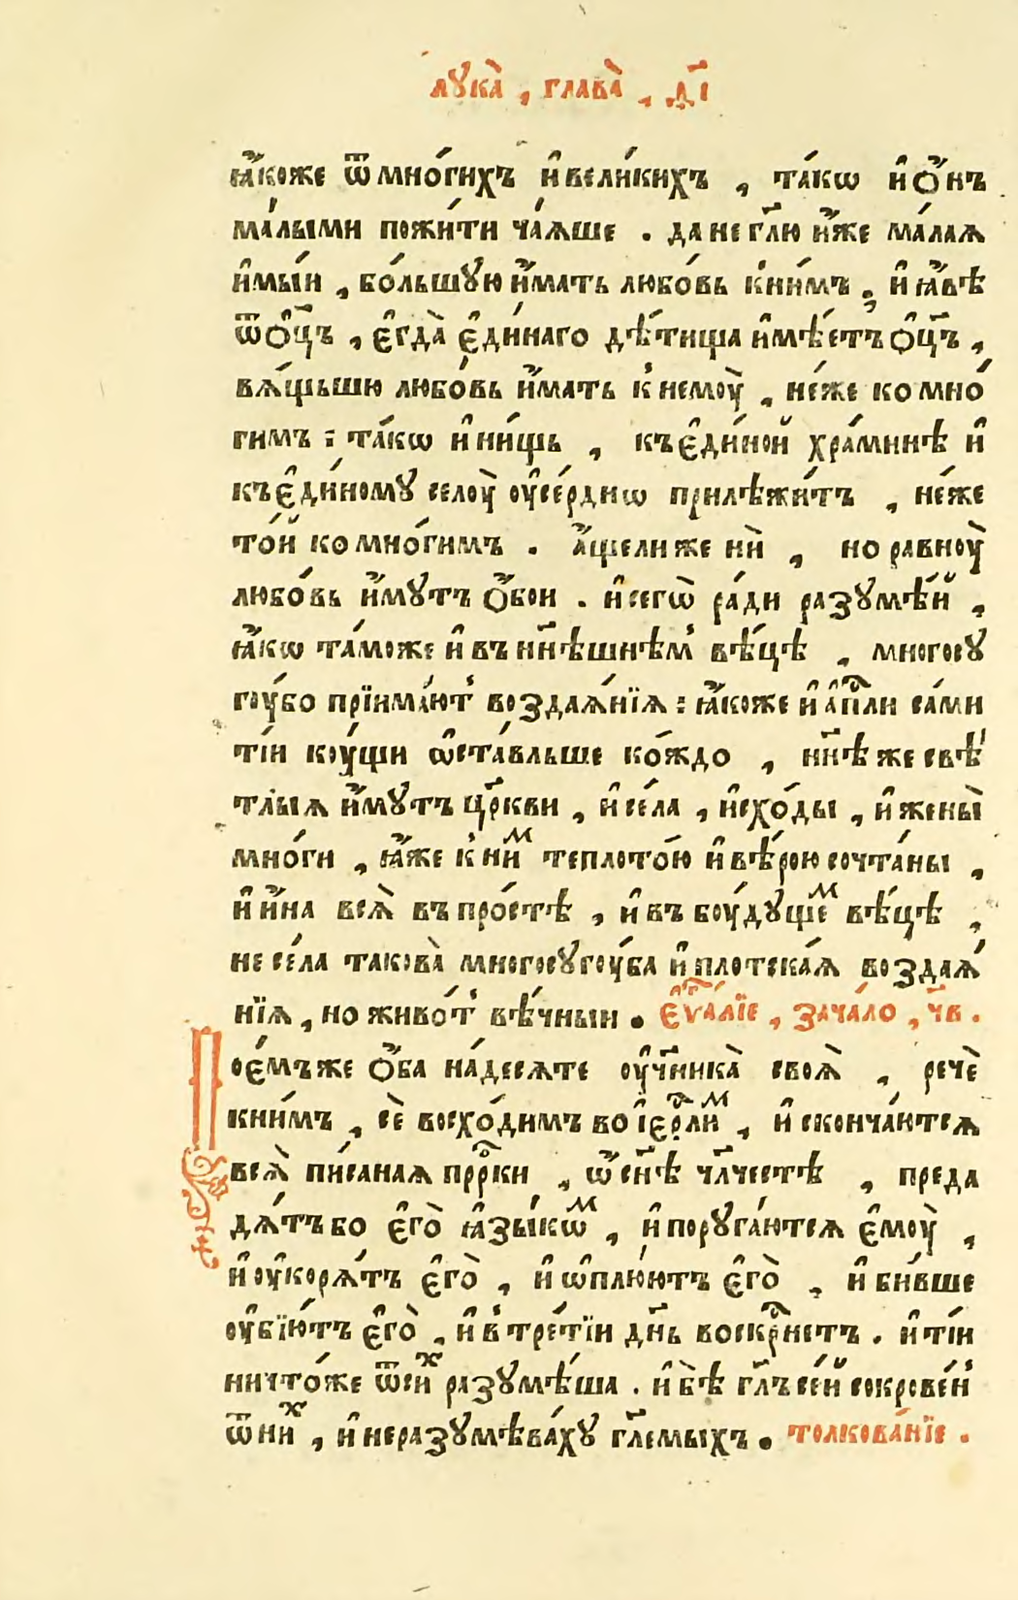 лꙋка̀, глава̀, д҃і
ꙗ҆́коже ѿ мно́гихъ и҆ вели́кихъ, та́кѡ и҆ ѻ҆́нъ
ма́лыми пожи́ти ча́ѧше. да не гл҃ю и҆́же ма́лаѧ
и҆мы́и, бо́льшꙋю и҆́мать любо́вь к ни́мъ, и҆ ꙗ҆́вѣ
ѿ ѻ҆ц҃ъ, є҆гда̀ є҆ди́наго дѣ́тища и҆мѣ́етъ ѻ҆ц҃ъ,
вѧ́щьшю любо́вь и҆́мать к немꙋ̀, не́же ко мно́
гимъ: та́кѡ и҆ ни́щь, къ є҆ди́ной хра́минѣ и҆
къ є҆ди́номꙋ селоу̀ оу҆се́рдиѡ прилѣжи́тъ, не́же
то́й ко мно́гимъ. а҆́щели же нѝ, но равноу̀
любо́вь и҆́мꙋтъ ѻ҆́бои. и҆ сегѡ̀ ра́ди разꙋмѣ́й,
ꙗ҆́кѡ та́може и҆ въ нн҃ѣшнѣм вѣ́цѣ, многосꙋ
гоу́бо прїима́ют воздаѧ́нїѧ: ꙗ҆́коже и҆ а҆пⷭ҇ли са́ми
ті́и коу́щи ѡ҆ста́вльше ко́ждо, нн҃ѣ же свѣ́
тлыѧ и҆́мꙋтъ цр҃кви, и҆ се́ла, и҆схо́ды, и҆ жены̀
мно́ги, ꙗ҆́же к ниⷨ теплото́ю и҆ вѣ́рою сочта́ны,
и҆ и҆́на всѧ̀ въ про́стѣ, и҆ въ боу́дꙋщеⷨ вѣ́цѣ,
не се́ла такова̀ многосꙋгоу́ба и҆ плотска́ѧ воздаѧ́
нїѧ, но живо́т вѣ́чныи. є҆ѵⷢ҇а́лїе, зача́ло, ч҃в.
Пое́мъ же ѻ҆́ба на́десѧте оу҆чн҃ика̀ своѧ̀, речѐ
к ни́мъ, сѐ восхо́димъ во і҆ерⷭ҇ли́ⷨ, и҆ сконча́ютсѧ
всѧ̀ пи́санаѧ прⷪ҇рки, ѡ҆ сн҃ѣ чл҃честѣ, преда
дѧ́тъ бо є҆го̀ ꙗ҆зы́кѡⷨ, и҆ порꙋга́ютсѧ є҆моу̀,
и҆ оу҆корѧ́тъ є҆го̀, и҆ ѡ҆плюю́тъ є҆го̀, и҆ би́вше
оу҆бїю́тъ є҆го̀, и҆ в тре́тїи дн҃ь воскрⷭ҇нетъ. и҆ ті́и
ничто́же ѿ сиⷯ разꙋмѣ́ша. и҆ бѣ̀ гл҃ъ се́й сокрове́н
ѿ ниⷯ, и҆ не разꙋмѣва́хꙋ гл҃емыхъ. толкова́нїе.